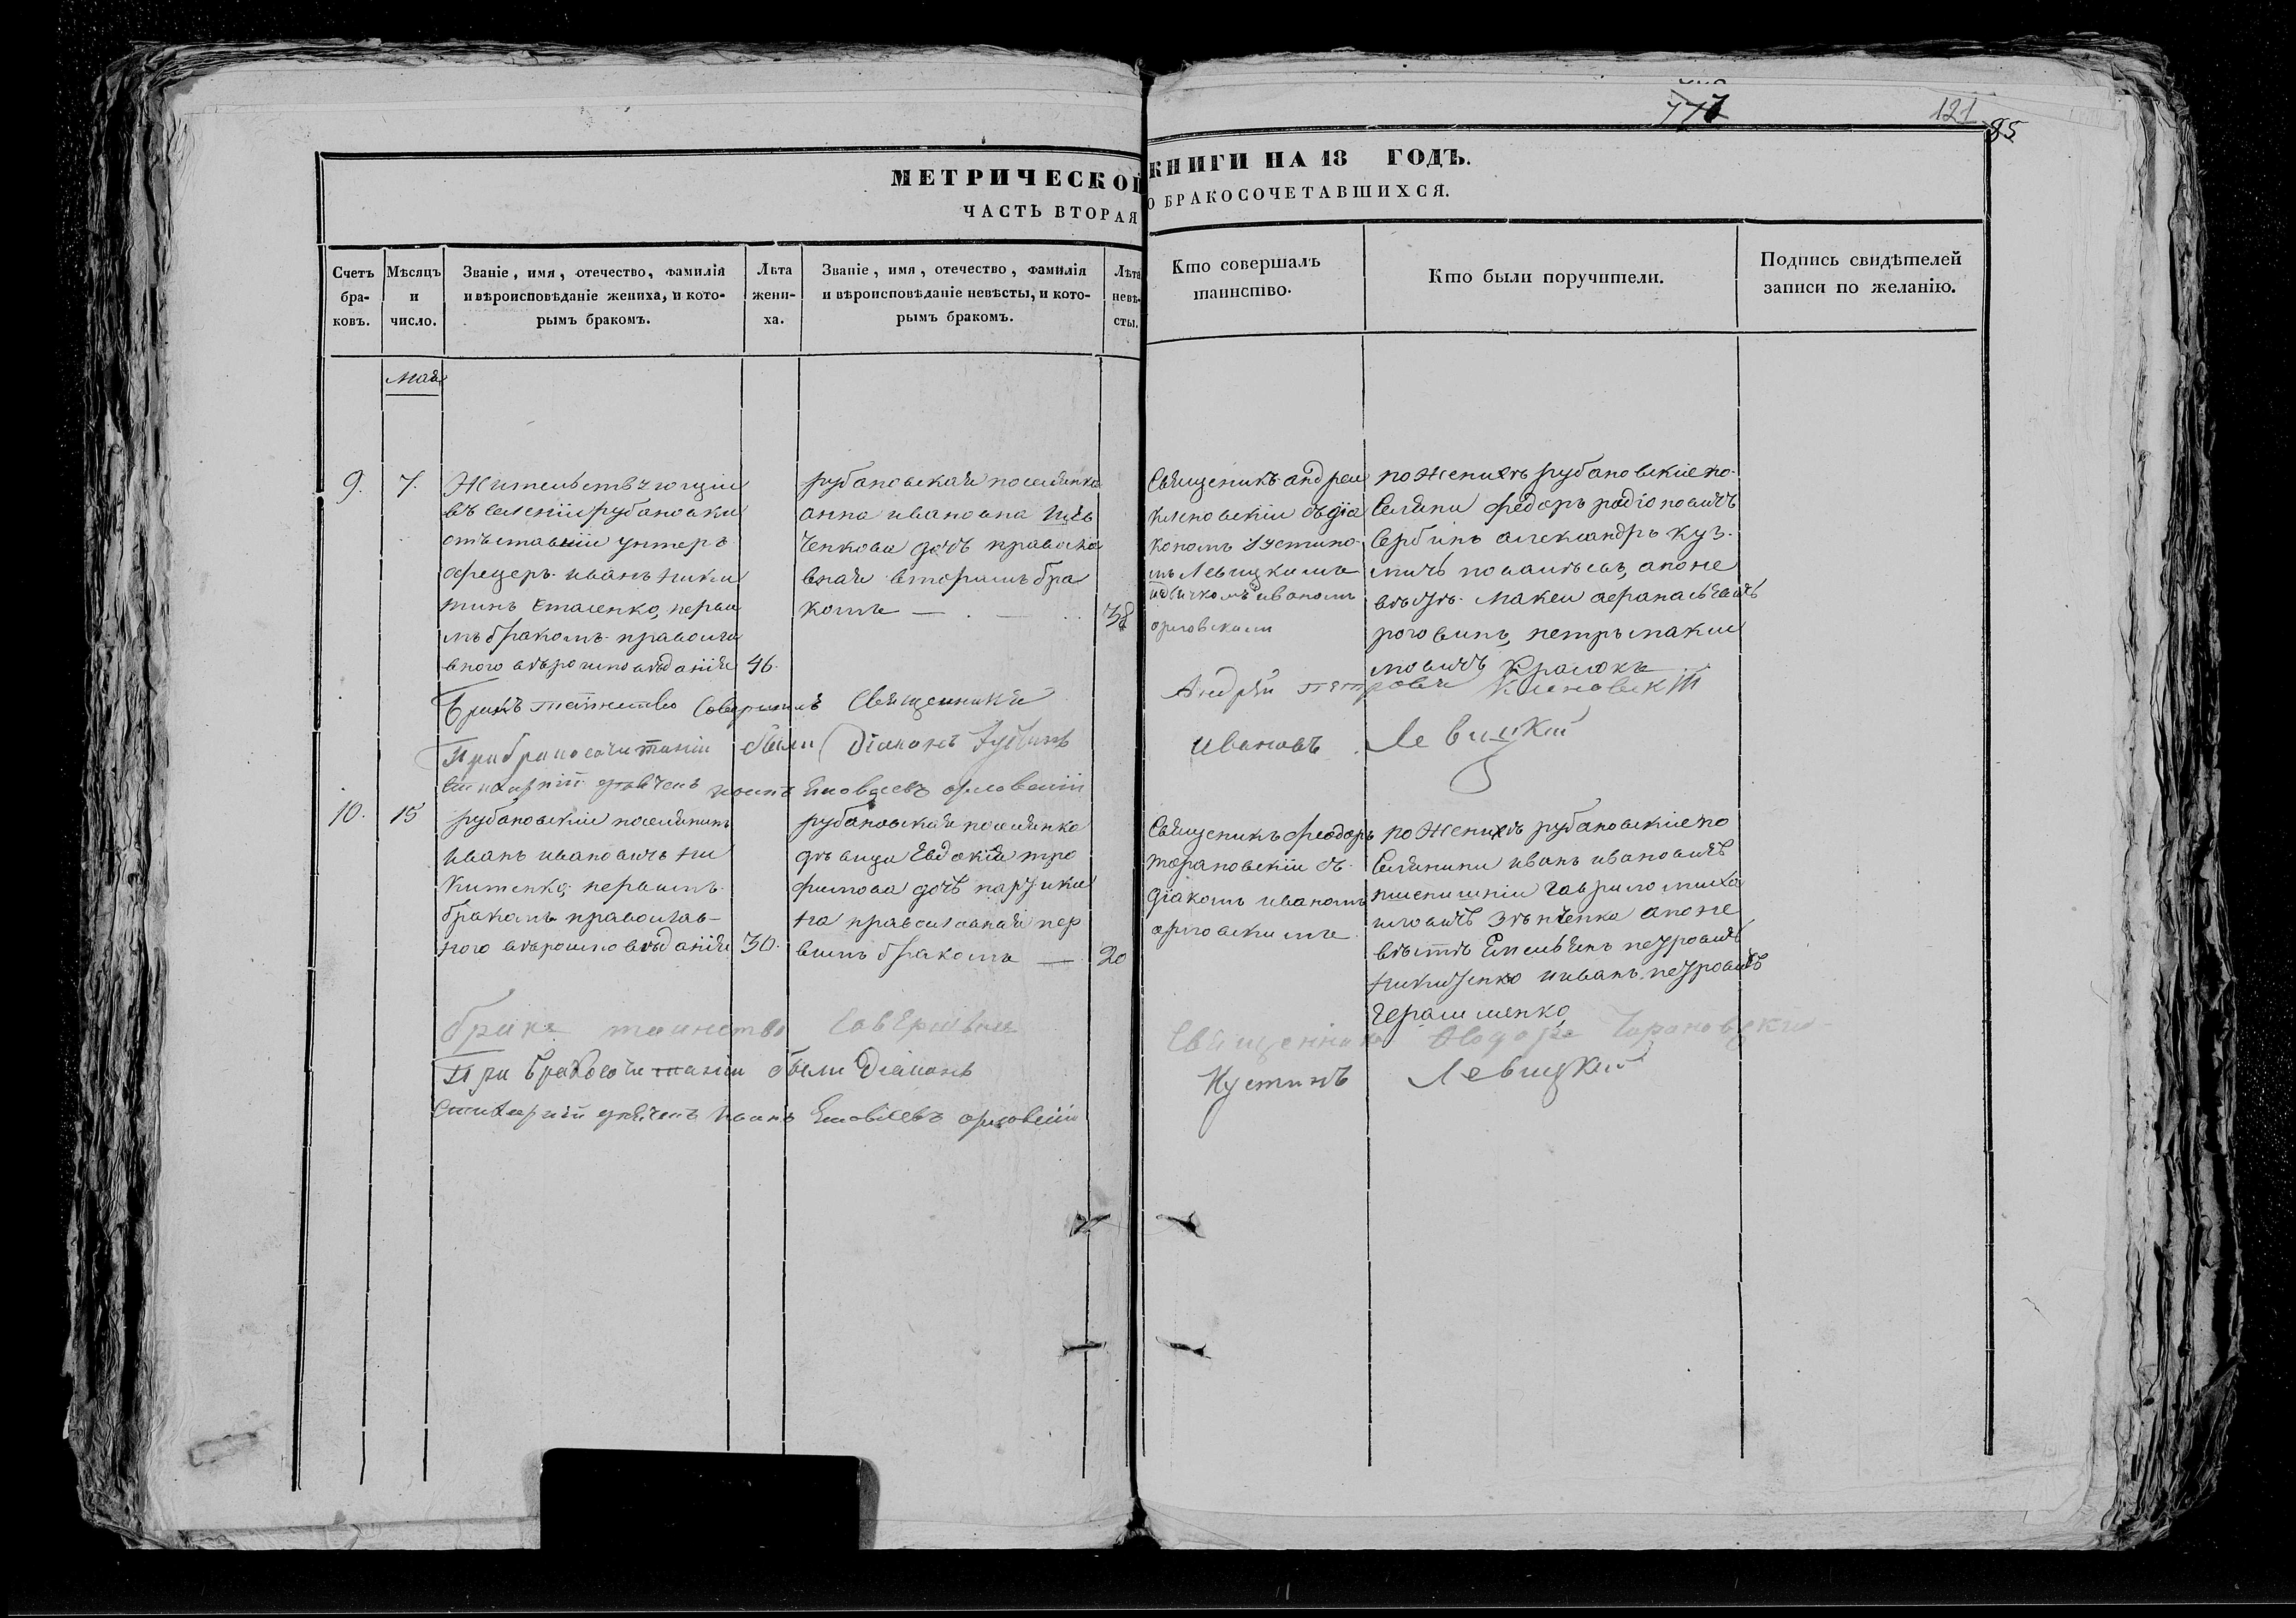 777
121
85
МЕТРИЧЕСКОЙ КНИГИ НА 18 ГОДЪ.
ЧАСТЬ ВТОРАЯ О БРАКОСОЧЕТАВШИХСЯ.
Счетъ бра-ковъ.
Мѣсяцъ и число.
Званіе, имя, отечество, фамилія
и вѣроисповѣданіе жениха, и кото-
рымъ бракомъ.
Лѣта жени-ха.
Званіе, имя, отечество, фамилія
и вѣроисповѣданіе невѣсты, и кото-
рымъ бракомъ.
Лѣта невѣ-сты.
Кто совершалъ
таинство.
Кто были поручители.
Подпись свидѣтелей
записи по желанію.
Маія
9. 7.
Жительствующи
въ селеніи рубановки
отъставніи унтеръ
офецеръ иванъ ники
тинъ первы
мъ бракомъ православ
вного вѣроисповѣданія 46.
рубановская поселянка
анна ивановна Шев
ченкова дочь православ
вная вторымъ бра
комъ — . — 38
Священикъ андреи
кленовскіи съ діа
кономъ Іустино
мъ Левицкимъ
иваномъ
орловскимъ
по Женихѣ рубановскіе по-
селяни федоръ родіоновичъ
Сербинъ александръ куз-
мичъ а по не
вѣстѣ макеи афанасьевичъ
петръ макси
мовичъ
Бракъ таинство Совершилъ Священникъ
Андрей Петровъ Кленовскій
При бракосочитаніи были Діаконъ Іустинъ
Ивановъ Левицкій
Иванъ орловскіи
10. 15
рубановскіи поселянинъ
иванъ ивановичъ ни
китенко, первымъ
бракомъ православ-
ного вѣроисповѣданія 30.
рубановская поселянка
дѣвица Евдокія тро
фимова дочь
на православная пер
вымъ бракомъ — 20
Священикъ феодоръ
тарановскіи съ
діакомъ иваномъ
орловскимъ
по Женихѣ рубановскіе по
селянини иванъ ивановичъ
гаврило миха
иловичъ а по не
вѣстѣ Емельянъ петровичъ
никитенко и иванъ петровичъ
Герасименко
бракъ таинство Совершилъ
Священникъ Ѳеодоръ Тарановскій
При бракосочитаніи были Діаконъ
Иустинъ Левицкій
Иванъ орловскіи